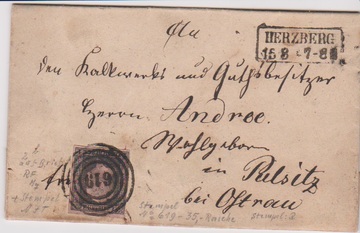 An
HERZBERG
15 8 7-8
den Kalkwerks und Guthsbesitzer
Herrn Andree.
Wohlgeboren
in Pulsitz
bei Ostrau
619
Stempel
No 619-35-
Stempel: 2
Stempel